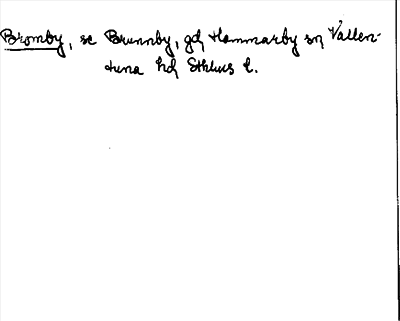 Bromby, se Brunnby, gd Hammarby sn Vallen-
tuna hd Sthlms l.